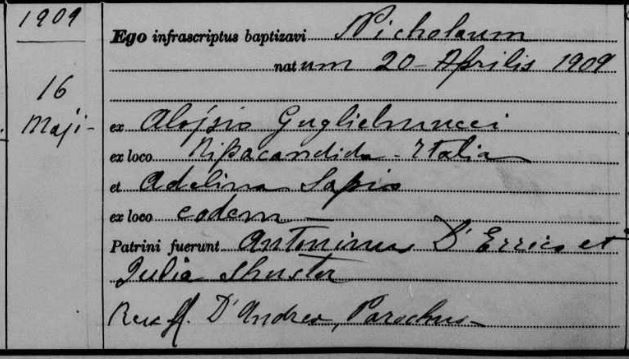 1909
Ego infrascriptus baptizavi Nicholaum
natum 20 Aprilis 1909
16
Maji -
ex Aloysio Guglielmucci
ex loco Ripacandida - Italia
et Adelina Sapio
ex loco eodem —
Patrini fuerunt Antoninus D'Errico et
Julia Shuster
D'Andrea, Parochus